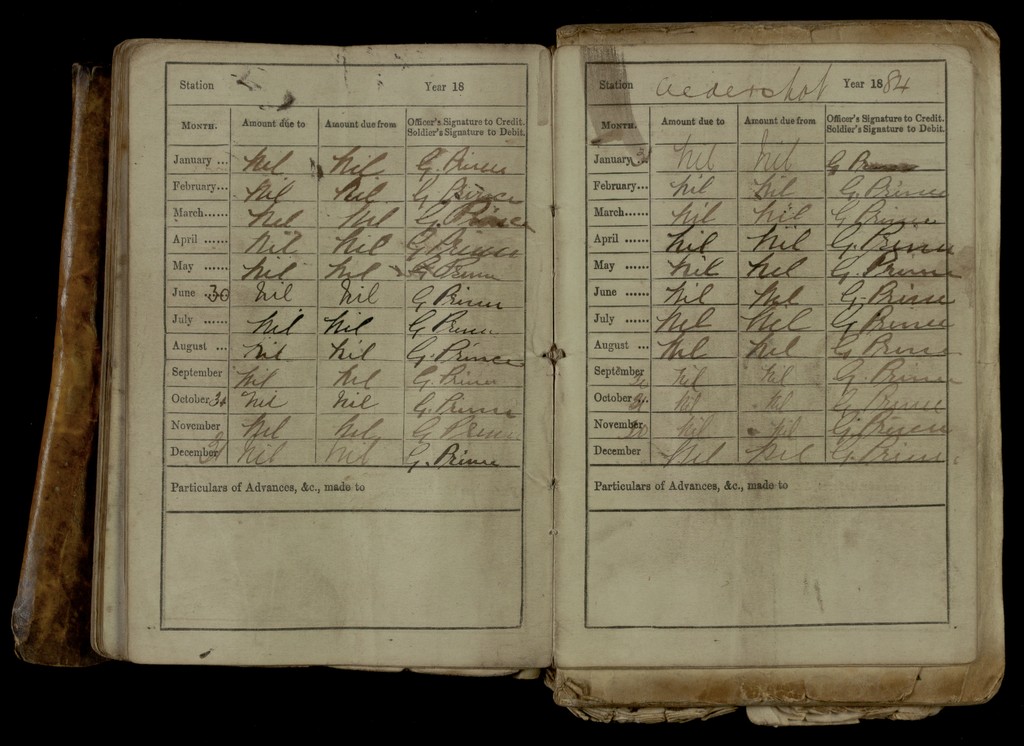 Station Year 18
Month. Amount due to Amount due from Officer's Signature to Credit. Soldier's Signature to Debit.
January ... Nil Nil G Prince
February... Nil Nil G Prince
March...... Nil Nil G. Prince
April ...... Nil Nil G Prince
May ...... Nil Nil G Prince
June 30 Nil Nil G Prince
July ...... Nil Nil G Prince
August ... Nil Nil G. Prince
September Nil Nil G. Prince
October 31 Nil Nil G. Prince
November Nil Nil G Prince
December 31 Nil Nil G. Prince
Particulars of Advances, &c., made to
Station Aldershot Year 1884
Month. Amount due to Amount due from Officer's Signature to Credit. Soldier's Signature to Debit.
January Nil Nil G Prince
February... Nil Nil G. Prince
March...... Nil Nil G Prince
April ...... Nil Nil G. Prince
May ...... Nil Nil G. Prince
June ...... Nil Nil G. Prince
July ...... Nil Nil G Prince
August ... Nil Nil G Prince
September 30 Nil Nil G. Prince
October 31 Nil Nil G Prince
November 30 Nil Nil G. Prince
December Nil Nil G. Prince
Particulars of Advances, &c., made to